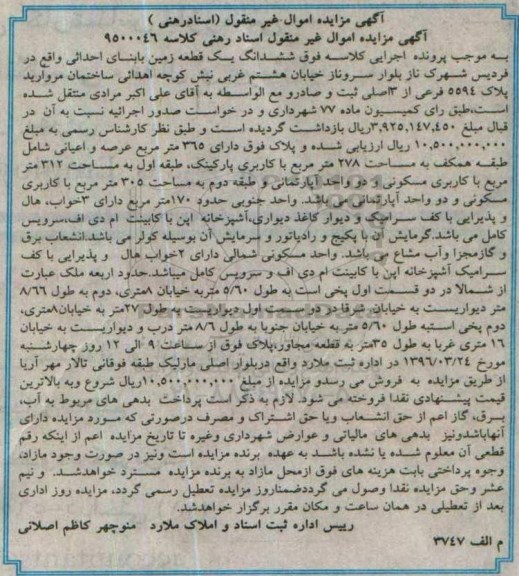 آگهی مزایده اموال غیر منقول (اسنادرهنی )
آگهی مزایده اموال غیر منقول اسناد رهنی کلاسه ۹۵۰۰۰۴۶
به موجب پرونده اجرایی کلاسه فوق ششدانگ یک قطعه زمین بابنای احداثی واقع در
فردیس شهرک ناز بلوار سروناز خیابان هشتم غربی نبش کوچه اهدائی ساختمان مروارید
پلاک ۵۵۹۴ فرعی از ۳اصلی ثبت و صادرو مع الواسطه به آقای علی اکبر مرادی منتقل شده
است،طبق رای کمیسیون ماده ۷۷ شهرداری و در خواست صدور اجرائیه نسبت به آن در
قبال مبلغ ۳,۹۲۵,۱۴۷,۴۵۰ریال بازداشت گردیده است و طبق نظر کارشناس رسمی به مبلغ
۱۰,۵۰۰,۰۰۰,۰۰۰ ریال ارزیابی شده و پلاک فوق دارای ۳۶۵ متر مربع عرصه و اعیانی شامل
طبقه همکف به مساحت ۲۷۸ متر مربع با کاربری پارکینگ، طبقه اول به مساحت ۳۱۲ متر
مربع با کاربری مسکونی و دو واحد آپارتمانی و طبقه دوم به مساحت ۳۰۵ متر مربع با کاربری
مسکونی و دو واحد آپارتمانی می باشد. واحد جنوبی حدود ۱۷۰متر مربع دارای ۳خواب، هال
و پذیرایی با کف سرامیک و دیوار کاغذ دیواری،آشپزخانه اپن با کابینت ام دی اف،سرویس
کامل می باشد.گرمایش آن با پکیج و رادیاتور و سرمایش آن بوسیله کولر می باشد.انشعاب برق
و گازمجزا وآب مشاع می باشد. واحد مسکونی شمالی دارای ۲خواب هال و پذیرایی با کف
سرامیک آشپزخانه اپن با کابینت ام دی اف و سرویس کامل میباشد.حدود اربعه ملک عبارت
از شمالا در دو قسمت اول پخی است به طول ۵/۶۰ متربه خیابان ۸متری، دوم به طول ۸/۶۶
متر دیواریست به خیابان شرقا در دو سمت اول دیواریست به طول ۲۷متر به خیابان۸متری،
دوم پخی استبه طول ۵/۶۰ متر به خیابان جنوبا به طول ۸/۶۶ متر درب و دیواریست به خیابان
۱۶ متری غربا به طول ۳۵متر به قطعه مجاور،پلاک فوق از ساعت ۹ الی ۱۲ روز چهارشنبه
مورخ ۱۳۹۶/۰۳/۲۴ در اداره ثبت ملارد واقع دربلوار اصلی مارلیک طبقه فوقانی تالار مهر آریا
از طریق مزایده به فروش می رسدو مزایده از مبلغ ۱۰,۵۰۰,۰۰۰,۰۰۰ریال شروع وبه بالاترین
قیمت پیشنهادی نقدا فروخته می شود. لازم به ذکر است پرداخت بدهی های مربوط به آب،
برق، گاز اعم از حق انشعاب ویا حق اشتراک و مصرف درصورتی که مورد مزایده دارای
آنهاباشدونیز بدهی های مالیاتی و عوارض شهرداری وغیره تا تاریخ مزایده اعم از اینکه رقم
قطعی آن معلوم شده یا نشده باشد به عهده برنده مزایده است ونیز در صورت وجود مازاد،
وجوه پرداختی بابت هزینه های فوق ازمحل مازاد به برنده مزایده مسترد خواهدشد. و نیم
عشر وحق مزایده نقدا وصول می گرددضمناروز مزایده تعطیل رسمی گردد، مزایده روز اداری
بعد از تعطیلی در همان ساعت و مکان مقرر برگزار خواهدشد.
رییس اداره ثبت اسناد و املاک ملارد منوچهر کاظم اصلانی
م الف ۳۷۴۷